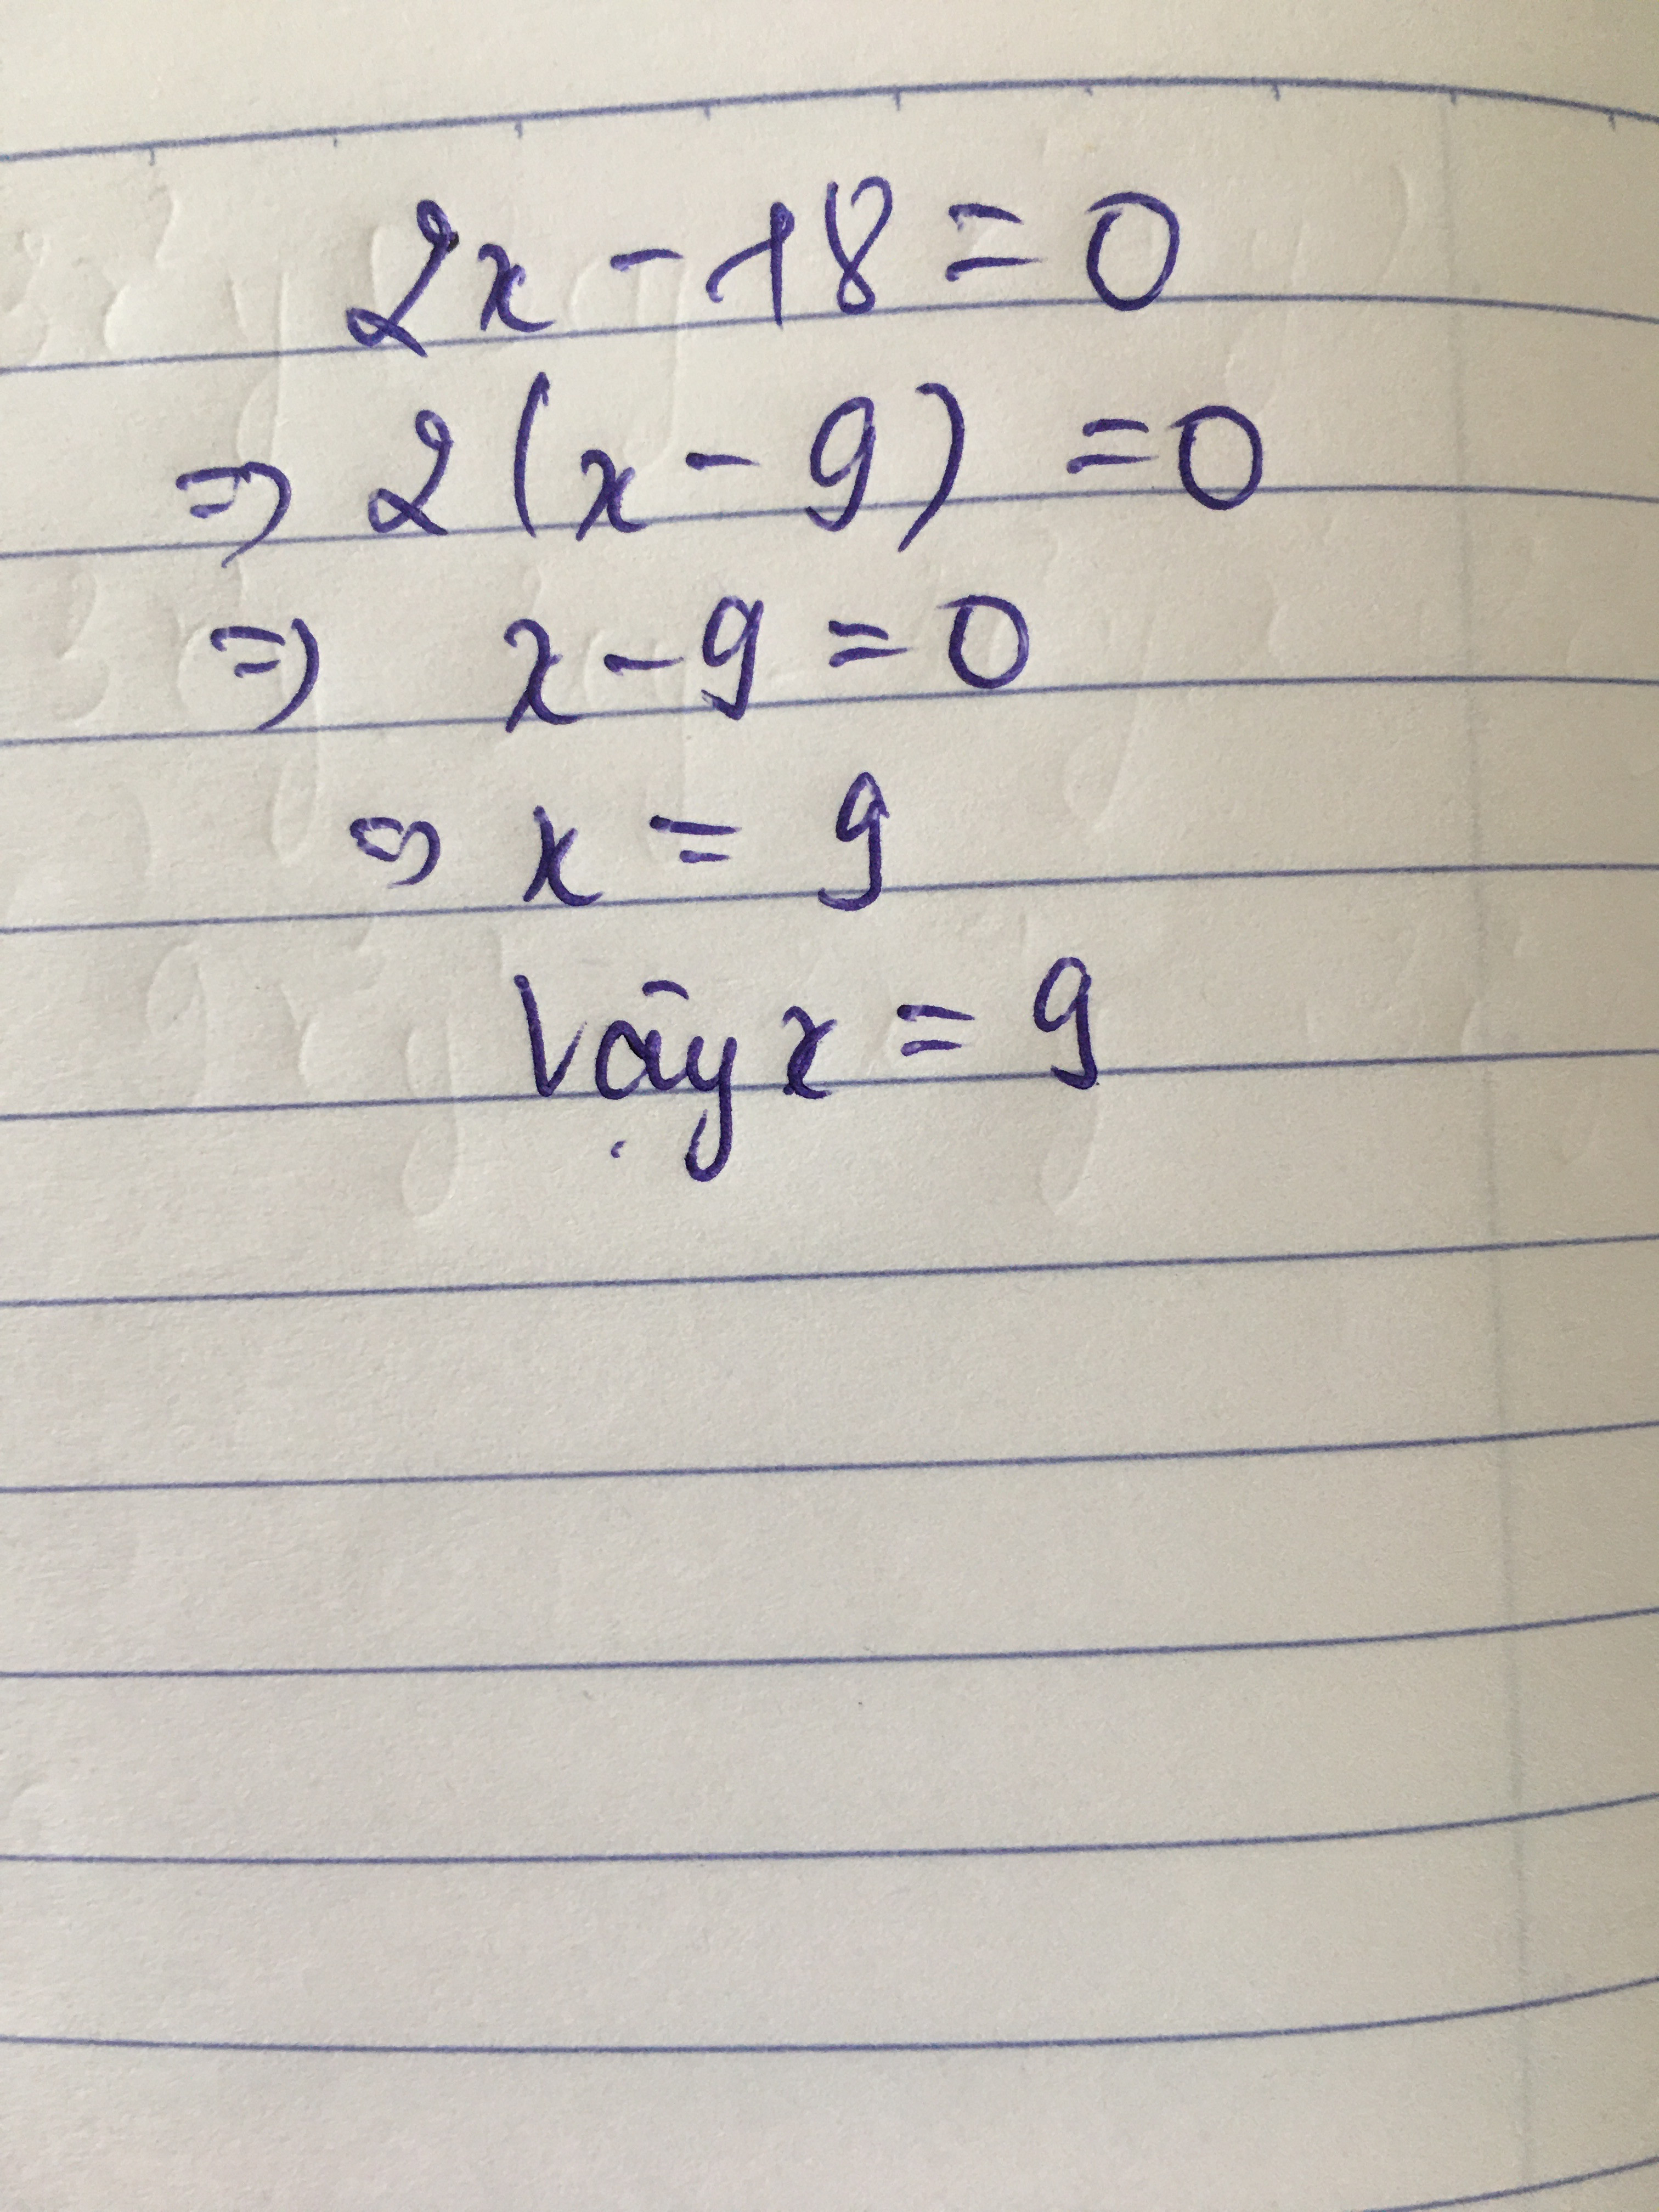 2x - 18 = 0
=> 2(x - 9) = 0
=> x - 9 = 0
=> x = 9
Vậy x = 9